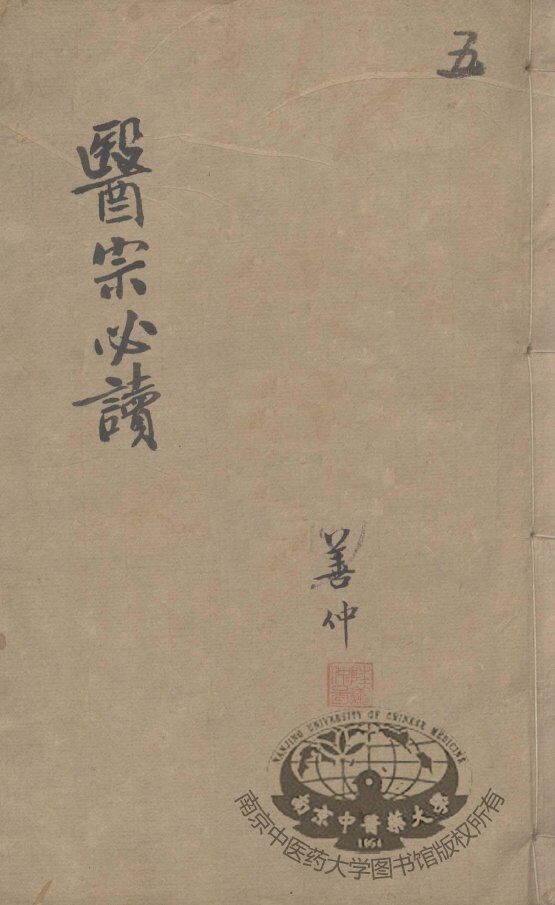 五
醫宗必讀
善仲
NANJING UNIVERSITY OF CHINESE MEDICINE
南京中醫藥大學
1954
南京中医药大学图书馆版权所有